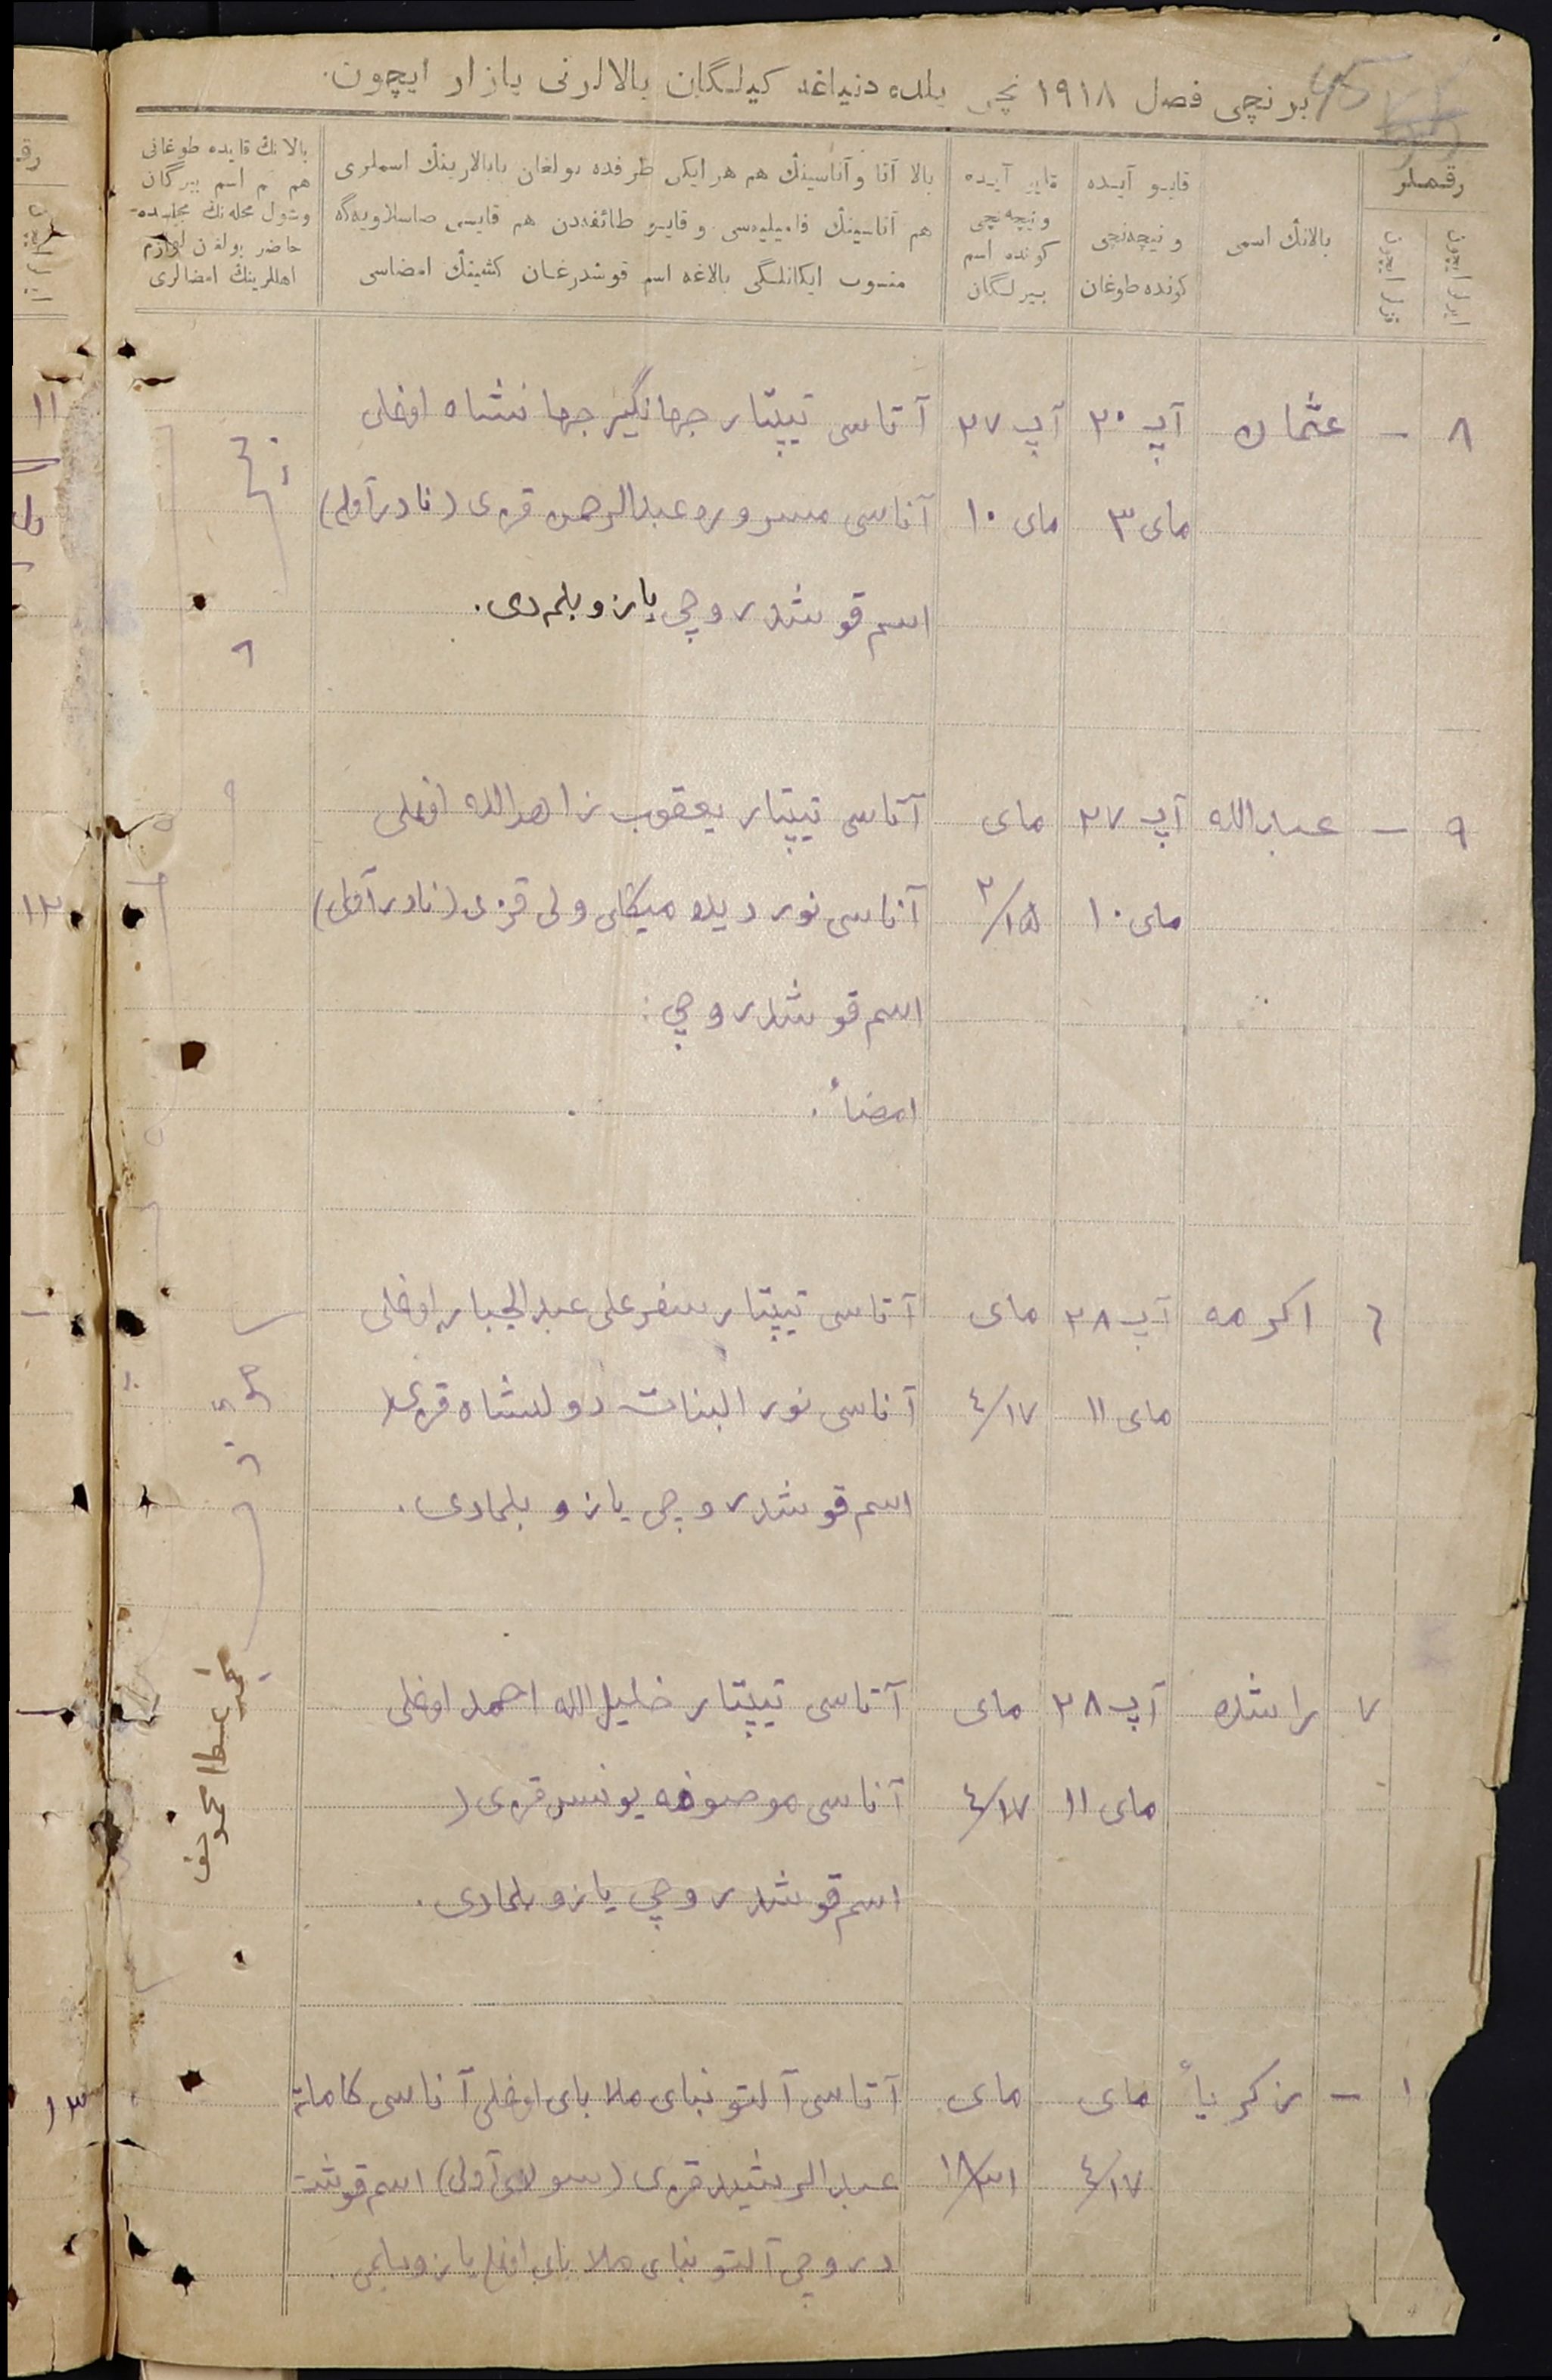 برنچی فصل ١٩١٨ نچی یلده دنیاغه کیلگان بالالرنی یازار ایچون.
رقملر
بالانڭ اسمی
قایو آیده
و نیچه‌نچی
کونده طوغان
قایو آیده
و نیچه‌نچی
کونده اسم
بیرلگان
بالا آتا و آناسینڭ هم هر ایکی طرفده بولغان بابالارینڭ اسملری
هم آتاسینڭ فامیلیه‌سی و قایو طائفه‌دن هم قایسی صاسلاویه‌گه
منسوب ایکانلگی بالاغه اسم قوشدرغان کشینڭ امضاسی
بالانڭ قایده طوغانی
هم اسم بیرگان
وشول محله‌نڭ مجلیده
حاضر بولغن لوازم
اهللرینڭ امضالری
٨ – عثمان آپ ٢٠ آپ ٢٧ آتاسی تیپتار جهانگیر جهانشاه اوغلی
مای ٣ مای ١٠ آناسی مسروره عبدالرحمن قزی (نادر آولی)
اسم قوشدروچی یازو بلمدی.
٩ – عبدالله آپ ٢٧ مای آتاسی تیپتار یعقوب زاهدالله اوغلی
مای ١٠ ٢/١٥ آناسی نور دیده میکائی ولی قزی (نادر آولی)
اسم قوشدروچی:
امضاء.
٦ اکرمه آپ ٢٨ مای آتاسی تیپتار سفرعلی عبدالجبار اوغلی
مای ١١ ٤/١٧ آناسی نور البنات دولتشاه قزی
اسم قوشدروچی یازو بلمادی.
٧ راشده آپ ٢٨ مای آتاسی تیپتار خلیل الله احمد اوغلی
مای ١١ ٤/١٧ آناسی موصوفه یونس قزی
اسم قوشدروچی یازو بلمادی.
١ – زکریاء مای مای آتاسی آلتونبای ملا بای اوغلی آناسی کاملة
٤/١٧ ١٨/٣١ عبدالرشید قزی (سولی آولی) اسم قوشت
دروچی آلتونبای ملا بای اوغلی یازو بلمی.